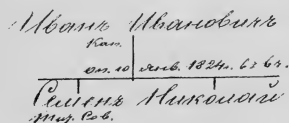 Иванъ Ивановичъ
Кап.
от. 10 янв. 1824г.
Семенъ Николай
Тит. Сов.